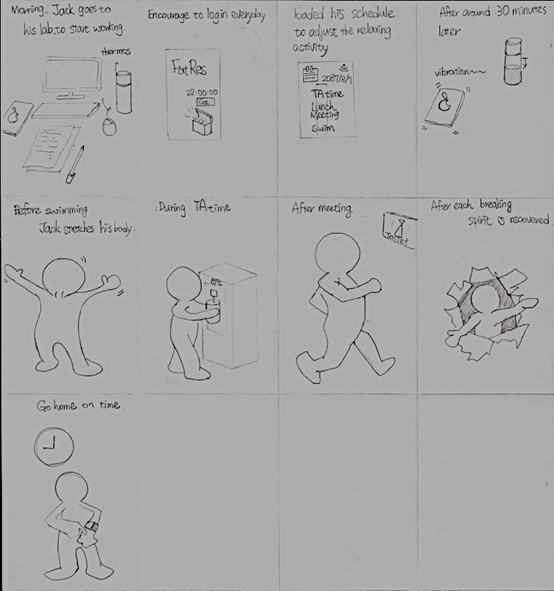 Morning. Jack goes to
his lab to start working
thermos
Encourage to login everyday
FoxRes
22:00:00
loaded his schedule
to adjust the relaxing
activity
TA time
Lunch
Meeting
Swim
After around 30 minutes
later
vibration~~
Before swimming
Jack stretches his body.
During TA time
After meeting
Toilet
After each breaking
spirit is recovered
Go home on time